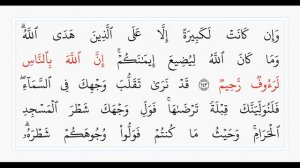 وَإِن كَانَتْ لَكَبِيرَةً إِلَّا عَلَى ٱلَّذِينَ هَدَى ٱللَّهُ ۗ
وَمَا كَانَ ٱللَّهُ لِيُضِيعَ إِيمَـٰنَكُمْ ۚ إِنَّ ٱللَّهَ بِٱلنَّاسِ
لَرَءُوفٌ رَّحِيمٌ ١٤٣ قَدْ نَرَىٰ تَقَلُّبَ وَجْهِكَ فِى ٱلسَّمَآءِ ۖ
فَلَنُوَلِّيَنَّكَ قِبْلَةً تَرْضَىٰهَا ۚ فَوَلِّ وَجْهَكَ شَطْرَ ٱلْمَسْجِدِ
ٱلْحَرَامِ ۚ وَحَيْثُ مَا كُنتُمْ فَوَلُّوا۟ وُجُوهَكُمْ شَطْرَهُۥ ۗ